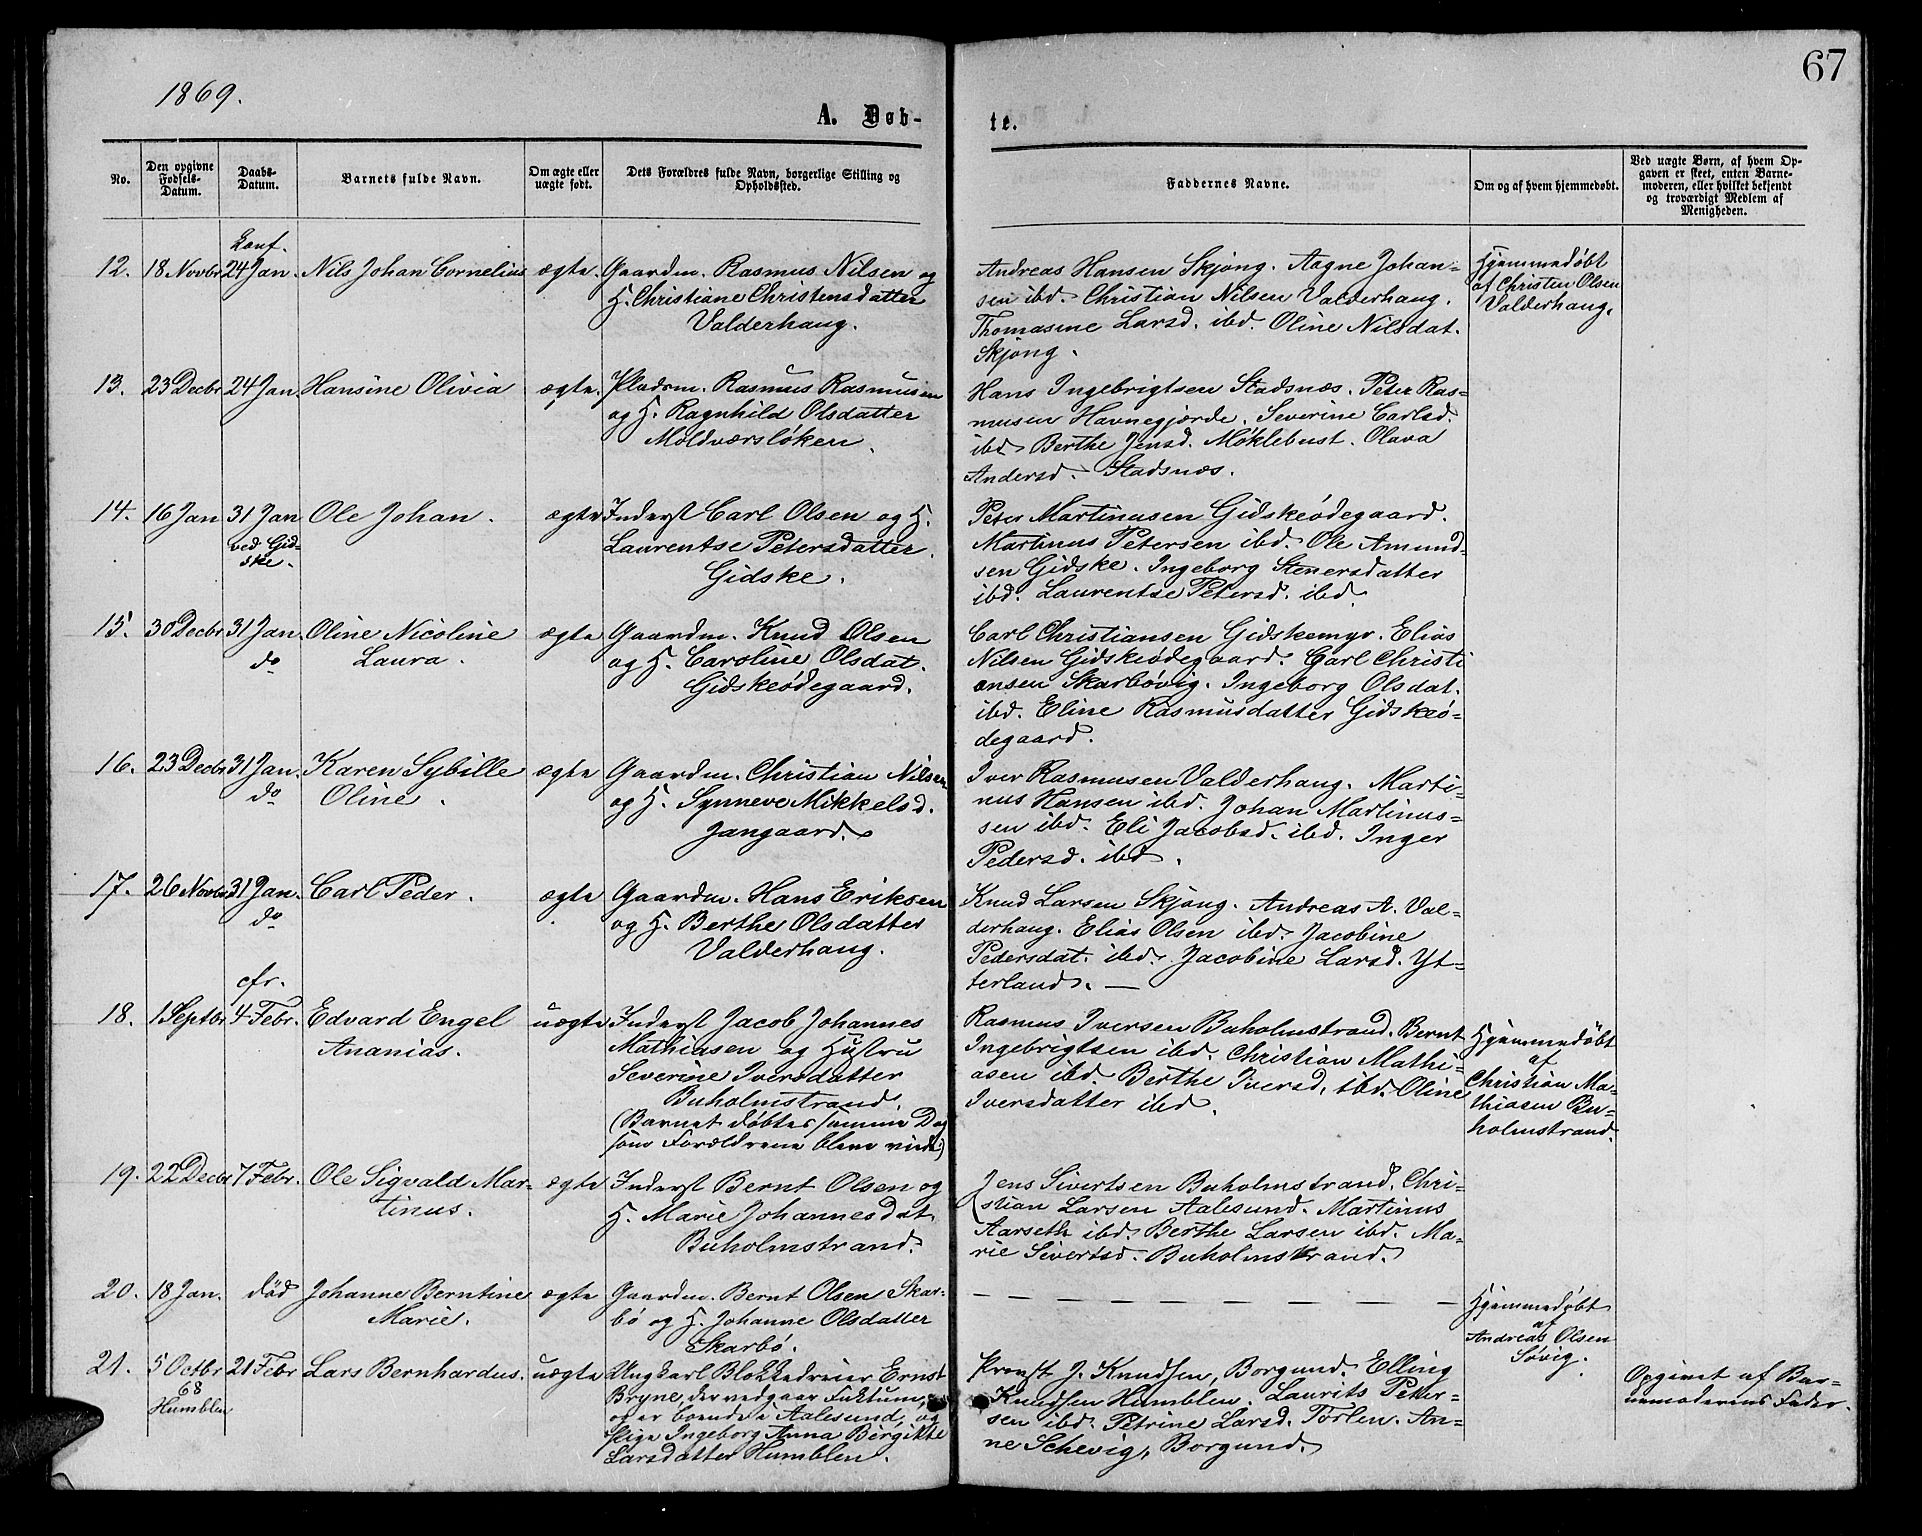 1869.
67
A. Døb-
te.
No.
Den opgivne
Fødsels-
Datum.
Daabs-
Datum.
Barnets fulde Navn.
Om ægte eller
uægte født.
Dets Forældres fulde Navn, borgerlige Stilling og
Opholdssted.
Faddernes Navne.
Om og af hvem hjemmedøbt.
Ved uægte Børn, af hvem Op-
gaven er skeet, enten Barne-
moderen, eller hvilket bekjendt
og troværdigt Medlem af
Menigheden.
12.
18 Novbr
Conf.
24 Jan.
Nils Johan Cornelius
ægte.
Gaardm. Rasmus Nilsen og
H. Christiane Christensdatter
Valderhaug.
Andreas Hansen Skjong. Aagne Johan-
sen ibd. Christian Nilsen Valderhaug.
Thomasine Larsd. ibd. Oline Nilsdat.
Skjong.
Hjemmedøbt
af Christen Olsen
Valderhaug.
13.
23 Decbr
24 Jan.
Hansine Olivia
ægte.
Pladsm. Rasmus Rasmusen
og H. Ragnhild Olsdatter
Moldværsløken.
Hans Ingebrigtsen Stadsnæs. Peter Ras-
musen Havnegjerde. Severine Carlsd.
ibd Berthe Jensd. Møklebust. Olava
Andersd. Stadsnæs.
14.
16 Jan
31 Jan
ved Gid-
ske.
Ole Johan.
ægte
Inderst Carl Olsen og H.
Laurentse Petersdatter.
Gidske.
Peter Martinusen Gidskeødegaard.
Martinus Petersen ibd. Ole Amund-
sen Gidske. Ingeborg Stenersdatter
ibd. Laurentse Petersd. ibd.
15.
30 Decbr
31 Jan.
do
Oline Nicoline
Laura.
ægte
Gaardm. Knud Olsen
og H. Caroline Olsdat.
Gidskeødegaard.
Carl Christiansen Gidskemyr. Elias
Nilsen Gidskeødegaard. Carl Christi
ansen Skarbøvig. Ingeborg Olsdat.
ibd. Eline Rasmusdatter Gidskeø-
degaard.
16.
23 Decbr
31 Jan.
do
Karen Sybille
Oline.
ægte
Gaardm. Christian Nilsen
og H. Synneve Mikkelsd.
Jangaard.
Iver Rasmusen Valderhaug. Marti-
nus Hansen ibd. Johan Martinus-
sen ibd. Eli Jacobsd. ibd. Inger
Pedersd. ibd.
17.
26 Novbr
31 Jan.
do
Carl Peder.
ægte
Gaardm. Hans Eriksen
og H. Berthe Olsdatter
Valderhaug.
Knud Larsen Skjong. Andreas A. Val-
derhaug. Elias Olsen ibd. Jacobine
Pedersdat. ibd. Jacobine Larsd. Yt-
terland. —
18.
1 Septbr
cfr.
4 Febr.
Edvard Engel
Ananias.
uægte
Inderst Jacob Johannes
Mathiasen og Hustru
Severine Iversdatter
Buholmstrand.
(Barnet døbtes samme Dag
som Forældrene bleve viede)
Rasmus Iversen Buholmstrand. Bernt
Ingebrigtsen ibd. Christian Mathi-
asen ibd. Berthe Iversd. ibd. Oline
Iversdatter ibd.
Hjemmedøbt
af
Christian Ma-
thiasen Bu-
holmstrand.
19.
22 Decbr
7 Febr.
Ole Sigvald Mar-
tinus.
ægte
Inderst Bernt Olsen og
H. Marie Johannesdat.
Buholmstrand.
Jens Sivertsen Buholmstrand. Chri-
stian Larsen Aalesund. Martinus
Aarseth ibd. Berthe Larsen ibd. Ma-
rie Sivertsd. Buholmstrand.
20.
18 Jan.
død
Johanne Berntine
Marie.
ægte
Gaardm. Bernt Olsen Skar-
bø og H. Johanne Olsdatter
Skarbø.
— — — — — — — — — —
Hjemmedøbt
af
Andreas Olsen
Søvig.
21.
5 Octbr
68
Humblen
21 Febr
Lars Bernhardus.
uægte
Ungkarl Blokkedreier Ernst
Bryne, der vedgaar Factum,
og er boende i Aalesund, og
Pige Ingeborg Anna Birgitte
Larsdatter Humblen.
Provst J. Knudsen, Borgund. Elling
Knudsen Humblen. Laurits Peter-
sen ibd. Petrine Larsd. Torlen. An-
ne Schevig, Borgund.
Opgivet af Bar-
nemoderens Fader.